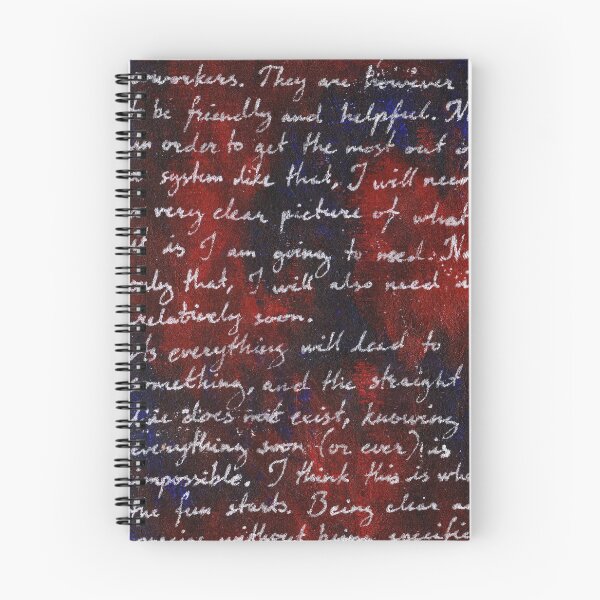 workers. They are however
be friendly and helpful. N
in order to get the most out
system like that, I will need
very clear picture of what
it is I am going to need. No
only that, I will also need
relatively soon.
As everything will lead to
something, and the straight
line does not exist, knowing
everything soon (or ever) is
impossible. I think this is whe
the fun starts. Being clear a
without being specific